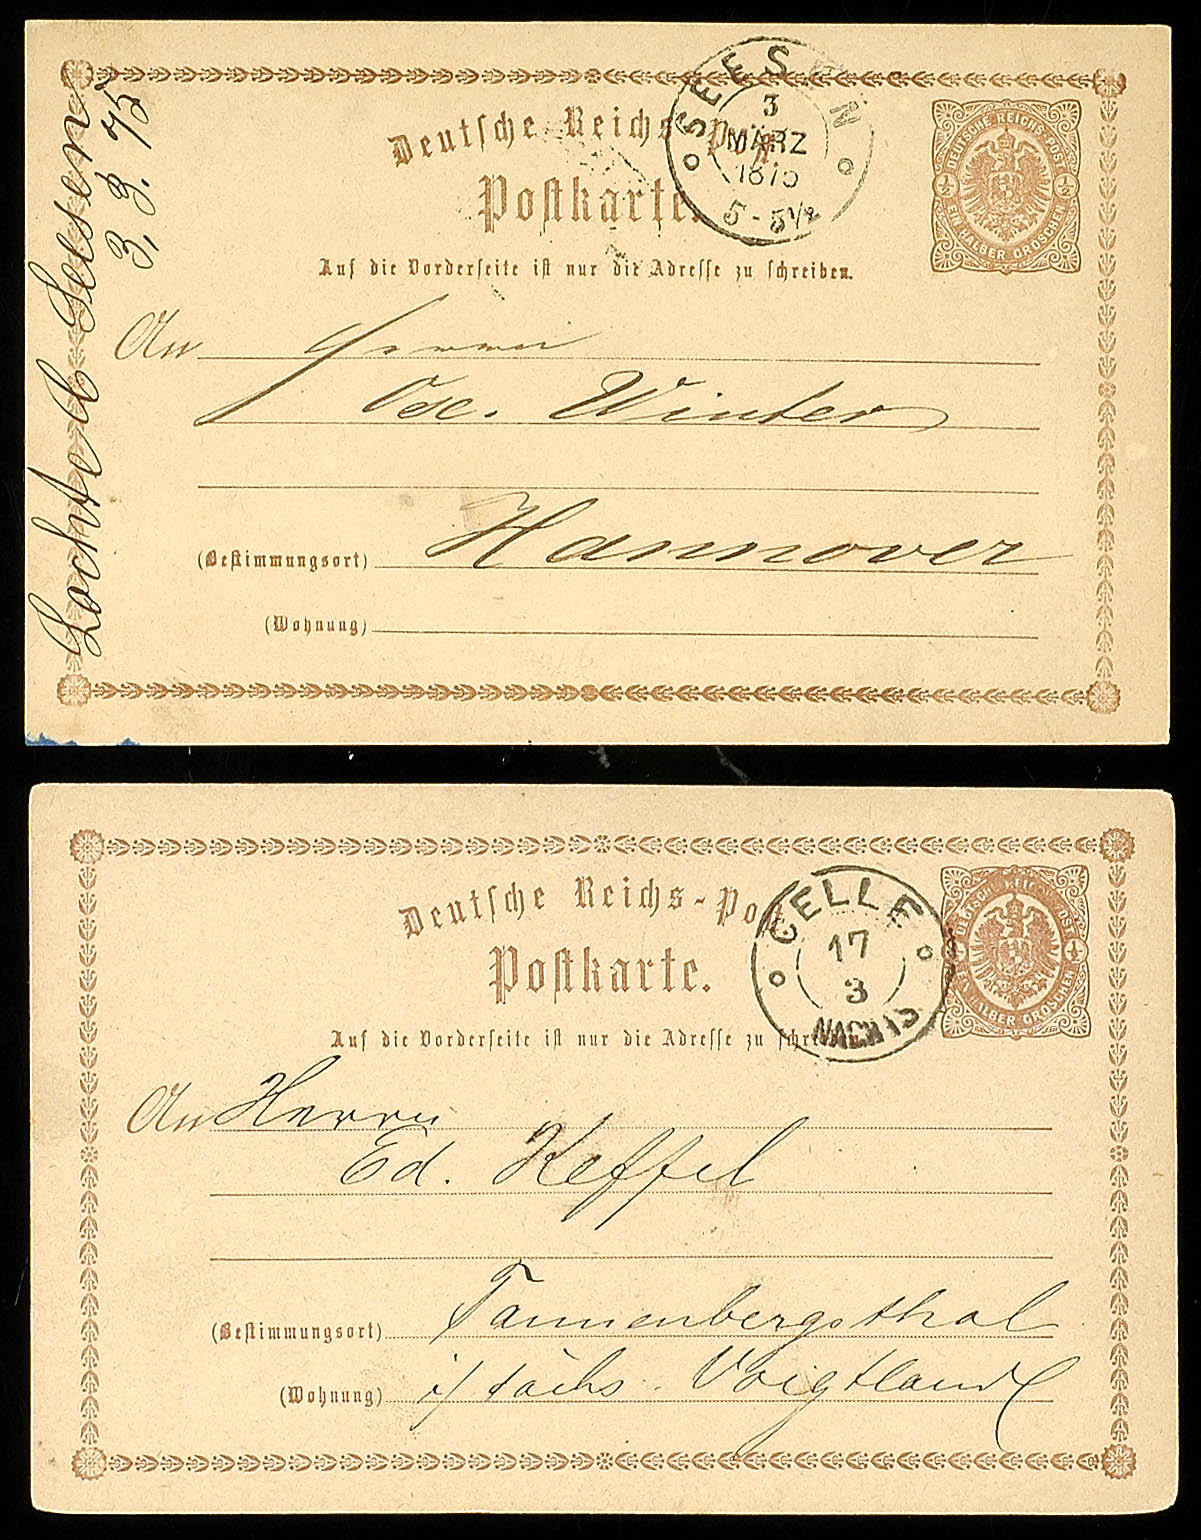 Lochte & Seesen
3. 3. 75
Deutsche Reichs-Post
Postkarte.
SEESEN
3
MÄRZ
1875
5-5½
DEUTSCHE REICHS-POST
½ ½
EIN HALBER GROSCHEN
Auf die Vorderseite ist nur die Adresse zu schreiben.
An Herrn
Osc. Winter
(Bestimmungsort) Hannover
(Wohnung)
Deutsche Reichs-Post
Postkarte.
CELLE
17
3
NACH
DEUTSCHE REICHS-POST
½ ½
EIN HALBER GROSCHEN
Auf die Vorderseite ist nur die Adresse zu schreiben.
An Herrn
Ed. Keffel
(Bestimmungsort) Tannenbergsthal
(Wohnung) i/ sächs. Voigtland